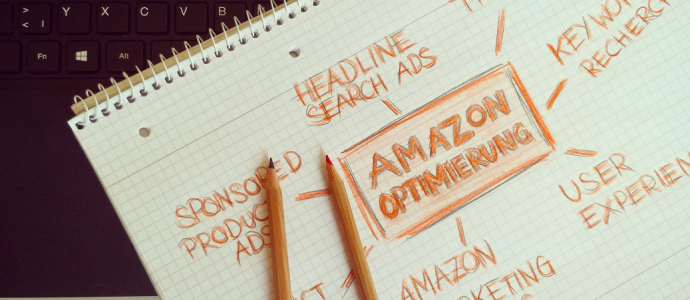 > < |
Y X C V B
Fn Alt
HEADLINE
SEARCH ADS
KEYWOR
RECHERCH
AMAZON
OPTIMIERUNG
SPONSORED
PRODUC
ADS
USER
EXPERIEN
AMAZON
RKETING
CT